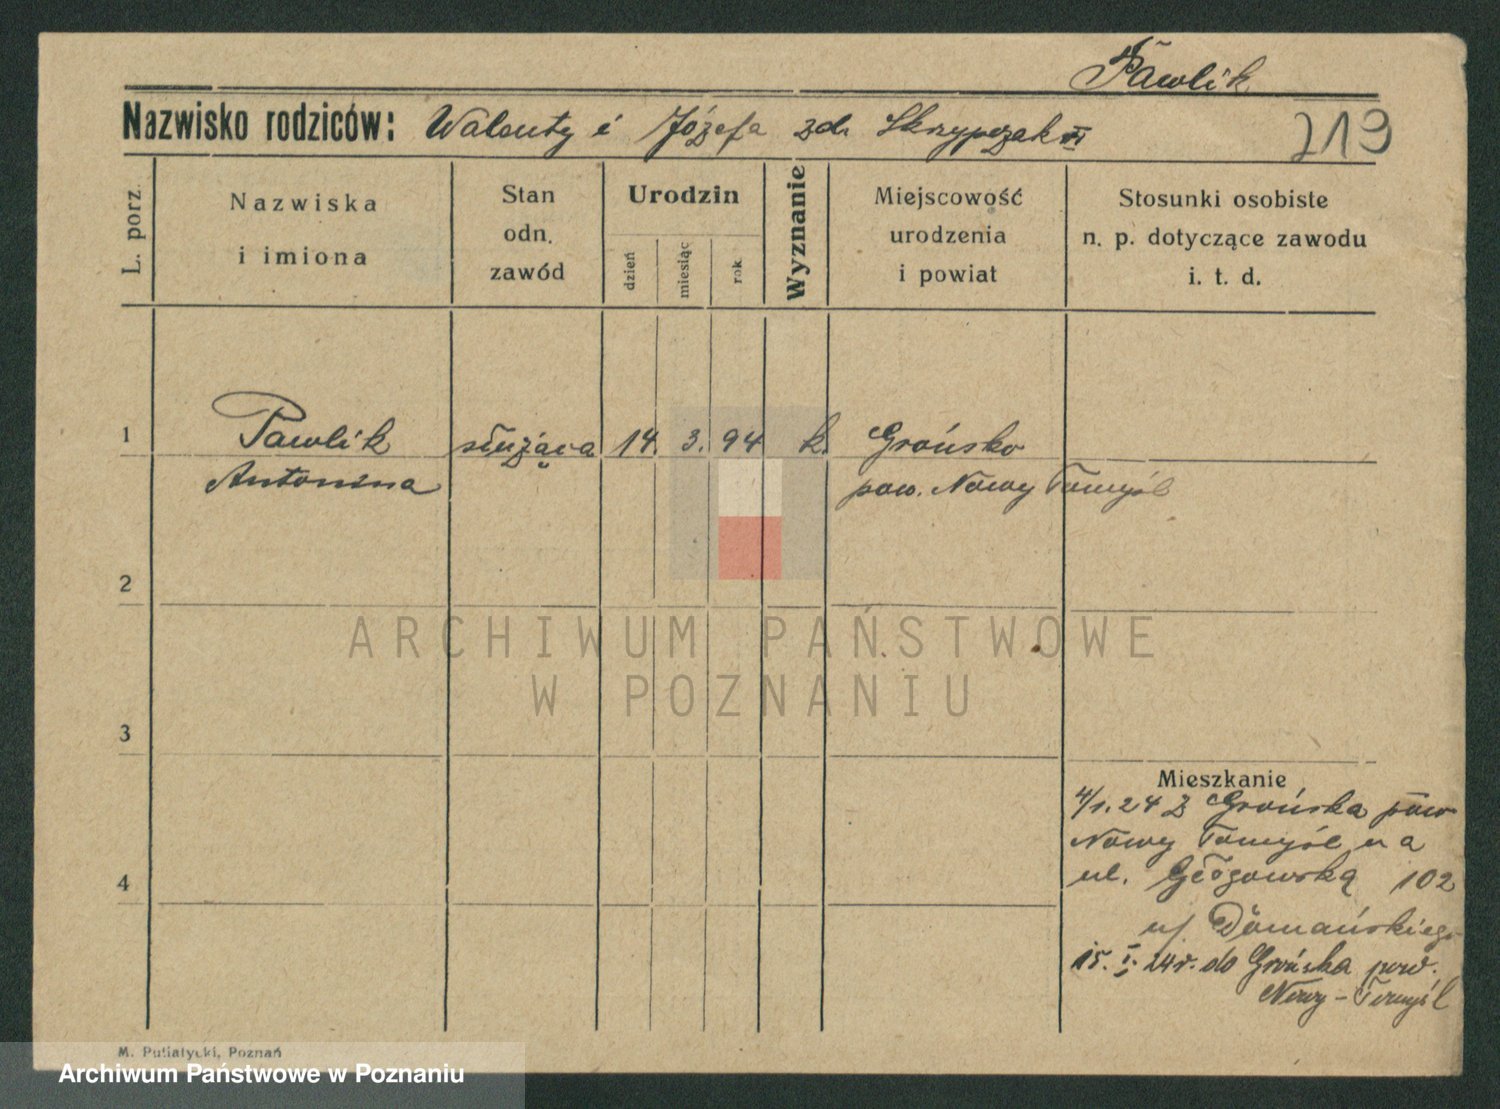 Pawlik
Nazwisko rodziców: Walenty i Józefa zd. Skrzypczak VI
219
L. porz.
Nazwiska
i imiona
Stan
odn.
zawód
Urodzin
dzień
miesiąc
rok.
Wyznanie
Miejscowość
urodzenia
i powiat
Stosunki osobiste
n. p. dotyczące zawodu
i. t. d.
1
Pawlik służąca 14. 3. 94 k. Grońsko
Antonina pow. Nowy Tomyśl
2
ARCHIWUM PAŃSTWOWE
W POZNANIU
3
Mieszkanie
4/1. 24 z Grońska pow
Nowy Tomyśl na
4
ul. Głogowską 102
u/ Domańskiego
15. I. 24 r. do Grońska pow.
Nowy-Tomyśl
M. Putiatycki, Poznań
Archiwum Państwowe w Poznaniu